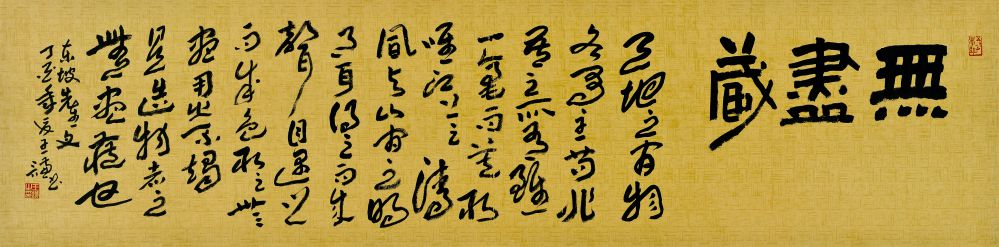 無盡藏
天地之間物
各有主苟非
吾之所有雖
一毫而莫取
唯江上之清
風與山間之明
月耳得之而成
聲目遇之
而成色取之無
盡用之不竭
是造物者之
無盡藏也
东坡先生文
丁亥年夏王書